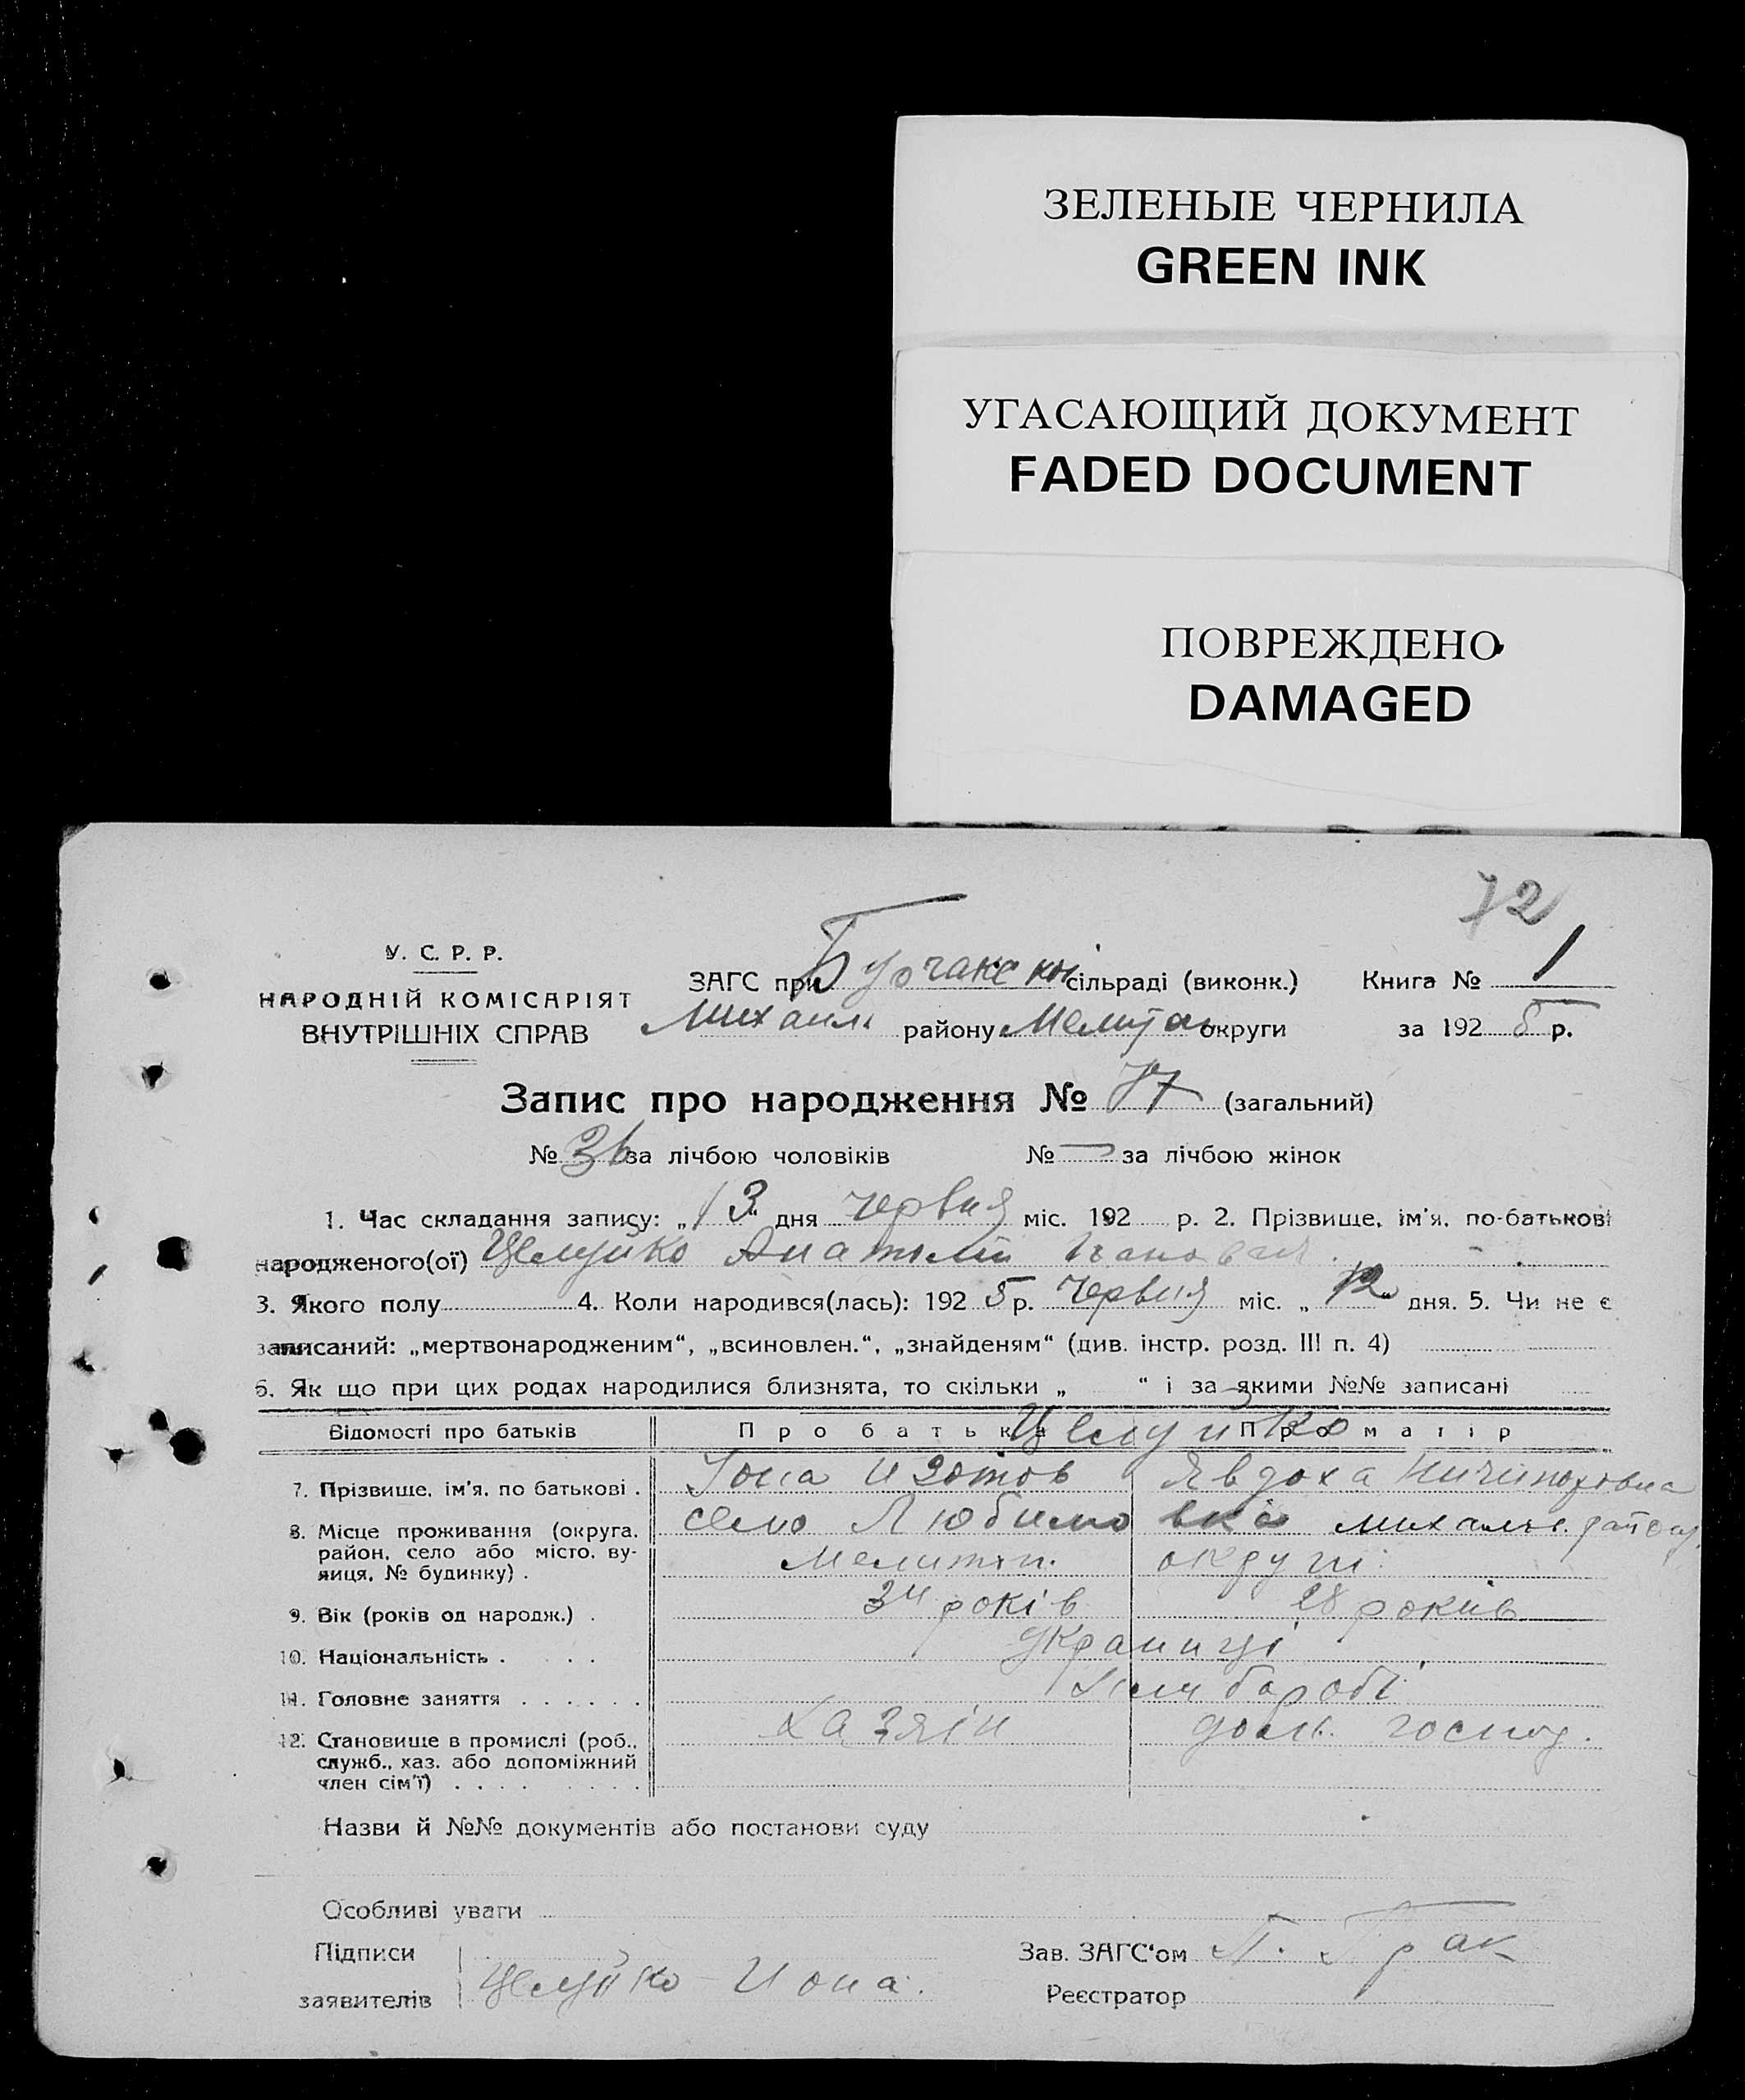 ЗЕЛЕНЫЕ ЧЕРНИЛА
GREEN INK
УГАСАЮЩИЙ ДОКУМЕНТ
FADED DOCUMENT
ПОВРЕЖДЕНО
DAMAGED
72
У. С. Р. Р.
НАРОДНІЙ КОМІСАРІЯТ
ВНУТРІШНІХ СПРАВ
ЗАГС при сільраді (виконк.) Книга № 1
району округи за 1925 р.
Запис про народження № 77 (загальний)
№ за лічбою чоловіків № — за лічбою жінок
1. Час складання запису: „13“ дня червня міс. 192 р. 2. Прізвище, ім'я, по-батькові
народженого(ої) Целуйко Анатолій
3. Якого полу 4. Коли народився(лась): 1925 р. Червня міс. „12“ дня. 5. Чи не є
записаний: „мертвонародженим“, „всиновлен.“, „знайденям“ (див. інстр. розд. III п. 4)
6. Як що при цих родах народилися близнята, то скільки „ “ і за якими №№ записані
Відомості про батьків Про батька Про матір
Целуйко
7. Прізвище, ім'я, по батькові . Іона Изотов Явдоха Ничипоровна
8. Місце проживання (округа, село Любимовка
район, село або місто, ву- округи
лиця, № будинку) .
9. Вік (років од народж.) . 34 років 28 років
10. Національність . . . . українці
11. Головне заняття . . . . . .
12. Становище в промислі (роб., Хазяін дом. господ.
служб., хаз. або допоміжний
член сім'ї) . . . . . . . .
Назви й №№ документів або постанови суду
Особливі уваги
Підписи Зав. ЗАГС'ом
заявителів Целуйко Иона. Реєстратор